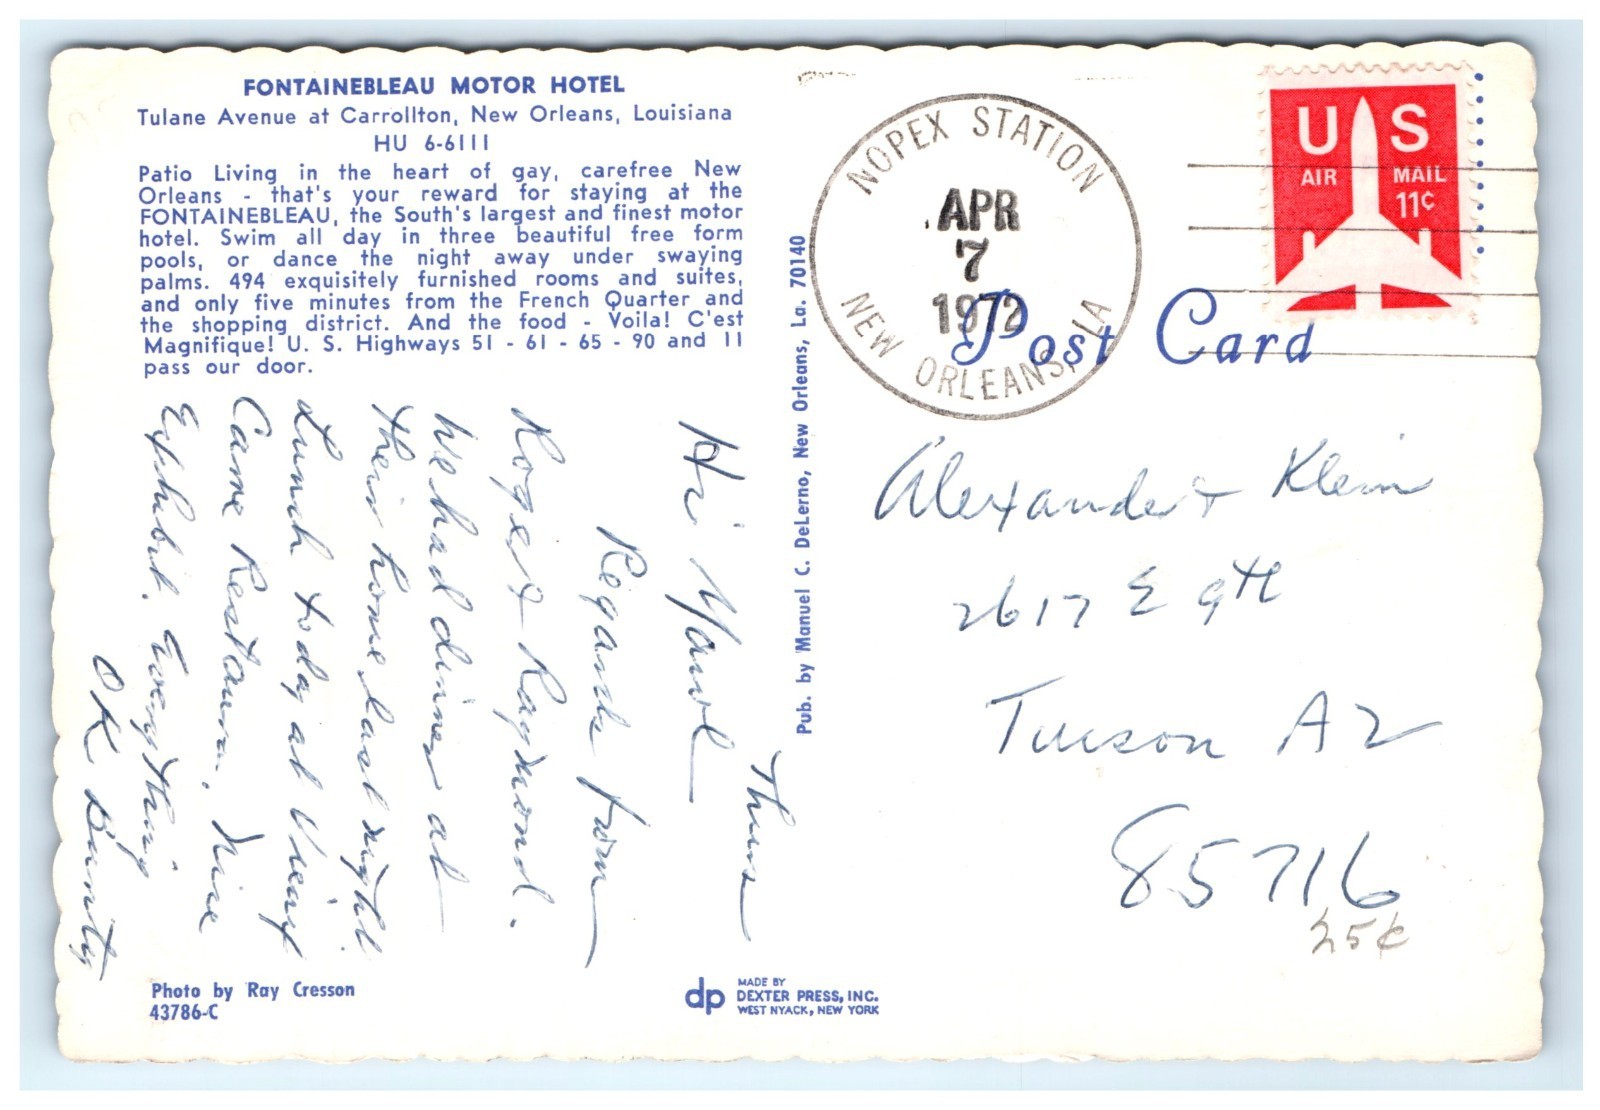 FONTAINEBLEAU MOTOR HOTEL
Tulane Avenue at Carrollton, New Orleans, Louisiana
HU 6-6111
Patio Living in the heart of gay, carefree New
Orleans - that's your reward for staying at the
FONTAINEBLEAU, the South's largest and finest motor
hotel. Swim all day in three beautiful free form
pools, or dance the night away under swaying
palms. 494 exquisitely furnished rooms and suites,
and only five minutes from the French Quarter and
the shopping district. And the food - Voila! C'est
Magnifique! U. S. Highways 51 - 61 - 65 - 90 and 11
pass our door.
Thurs
Hi
Regards from
Roger & Raymond.
We had dinner at
their home last night.
Lunch today at Vieux
Carre Restaurn. Nine
Exhibit. Everything
OK Bunty
Photo by Ray Cresson
43786-C
Pub. by Manuel C. DeLerno, New Orleans, La. 70140
dp
MADE BY
DEXTER PRESS, INC.
WEST NYACK, NEW YORK
NOPEX STATION
APR
7
1972
NEW ORLEANS, LA
US
AIR MAIL
11¢
Post Card
Alexander Klein
2617 E 9th
Tucson AZ
85716
25¢